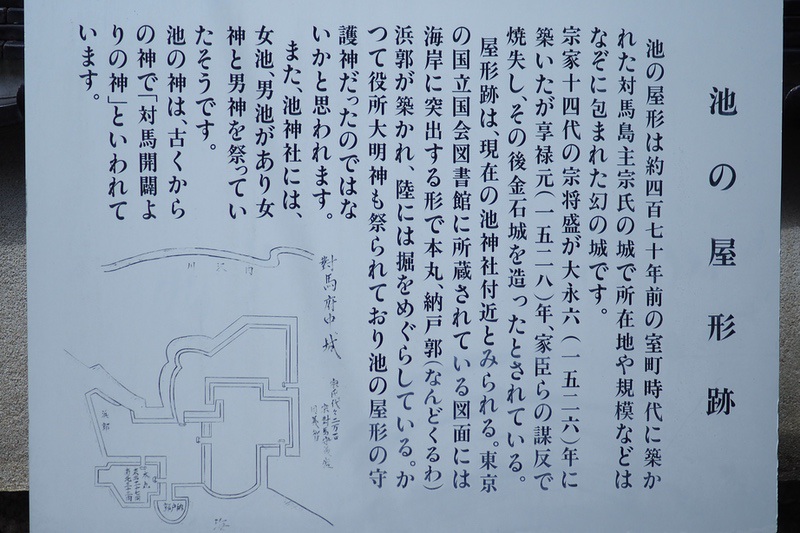 池の屋形跡
池の屋形は約四百七十年前の室町時代に築か
れた対馬島主宗氏の城で所在地や規模などは
なぞに包まれた幻の城です。
宗家十四代の宗将盛が大永六(一五二六)年に
築いたが享禄元(一五二八)年、家臣らの謀反で
焼失し、その後金石城を造ったとされている。
屋形跡は、現在の池神社付近とみられる。東京
の国立国会図書館に所蔵されている図面には
海岸に突出する形で本丸、納戸郭(なんどくるわ)
浜郭が築かれ、陸には掘をめぐらしている。か
つて役所大明神も祭られており池の屋形の守
護神だったのではな
いかと思われます。
また、池神社には、
女池、男池があり女
神と男神を祭ってい
たそうです。
池の神は、古くから
の神で「対馬開闢よ
りの神」といわれて
います。
對馬府中城